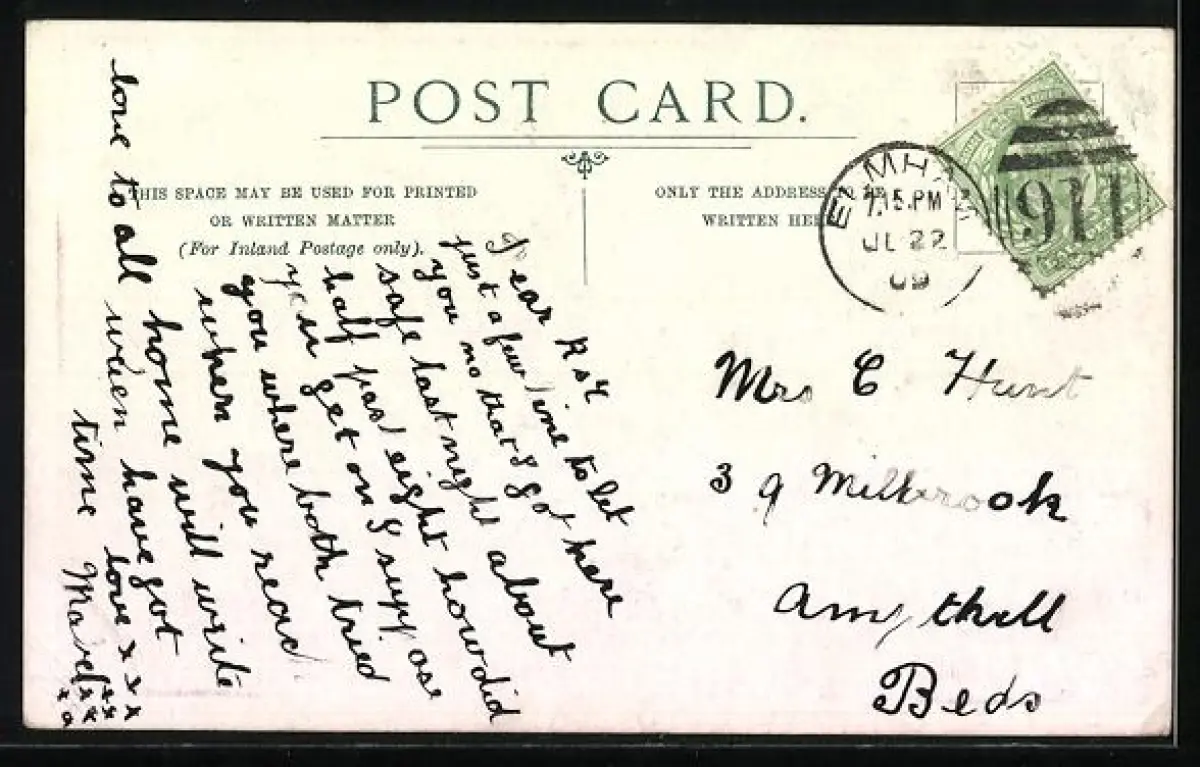 POST CARD.
THIS SPACE MAY BE USED FOR PRINTED
OR WRITTEN MATTER
(For Inland Postage only).
ONLY THE ADDRESS TO BE
WRITTEN HERE
7.15.PM
JL 22
09
911
Dear
just a few line to let
you no that I got here
safe last night about
half past eight how did
you get on I suppose
you where both tired
when you reac
love to all home will write
wuen have got
time love x x x
Mabel
Mrs C Hunt
39 Millbrook
Ampthill
Beds